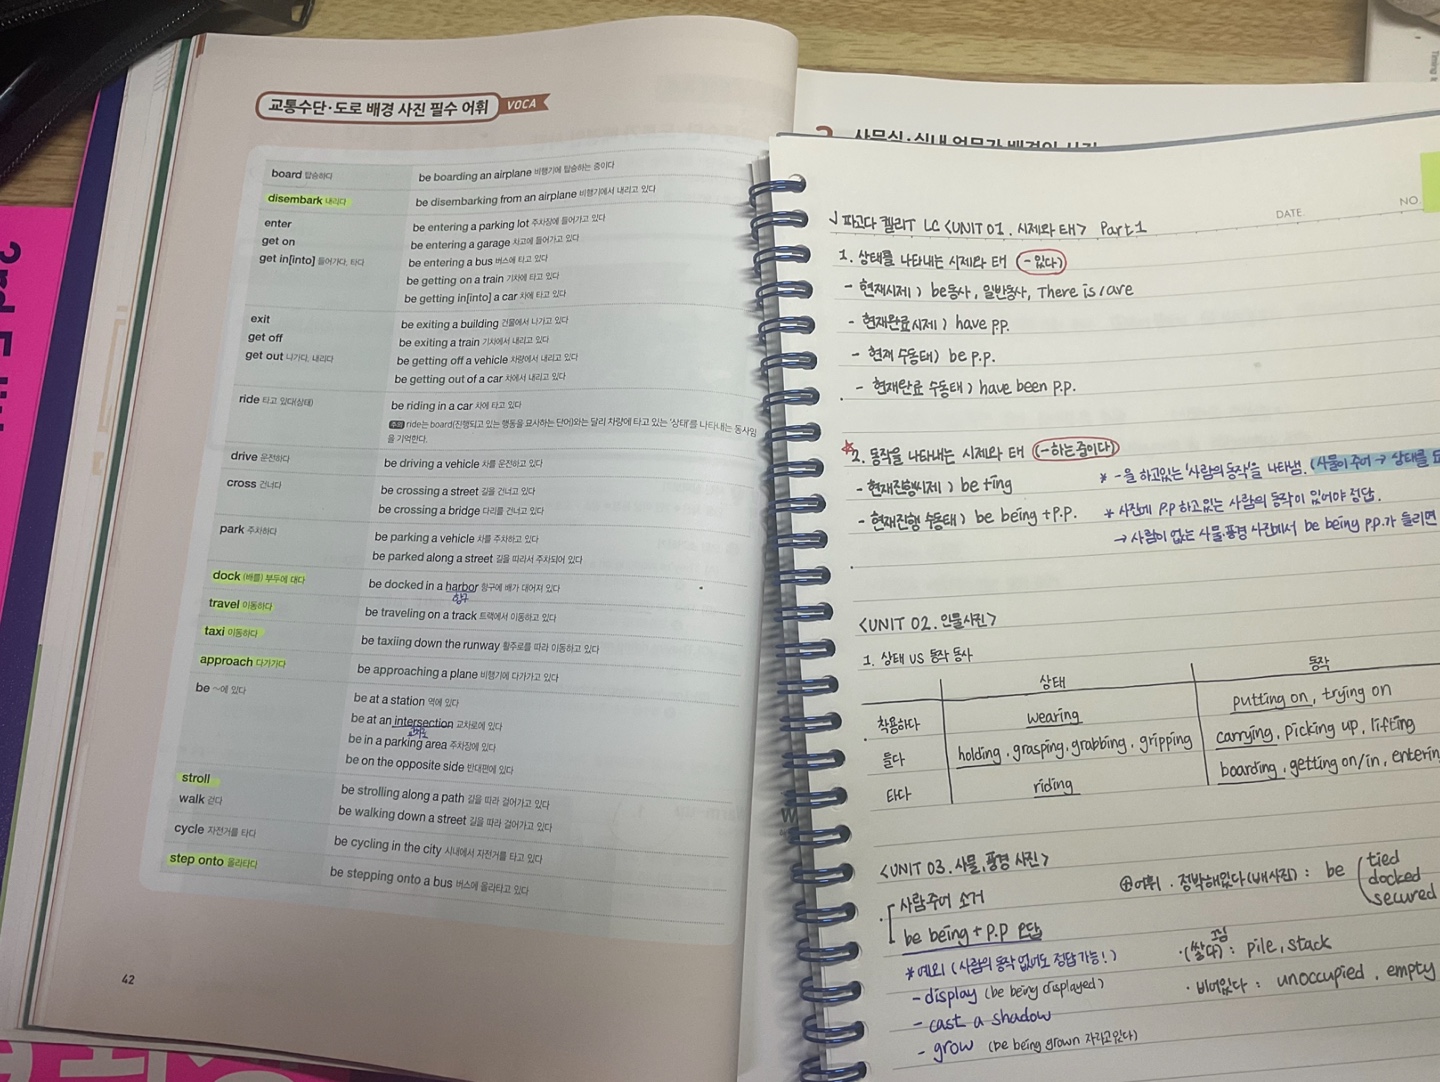 교통수단·도로 배경 사진 필수 어휘 VOCA
board 탑승하다 be boarding an airplane 비행기에 탑승하는 중이다
disembark 내리다 be disembarking from an airplane 비행기에서 내리고 있다
enter be entering a parking lot 주차장에 들어가고 있다
get on be entering a garage 차고에 들어가고 있다
get in[into] 들어가다, 타다 be entering a bus 버스에 타고 있다
be getting on a train 기차에 타고 있다
be getting in[into] a car 차에 타고 있다
exit be exiting a building 건물에서 나가고 있다
get off be exiting a train 기차에서 내리고 있다
get out 나가다, 내리다 be getting off a vehicle 차량에서 내리고 있다
be getting out of a car 차에서 내리고 있다
ride 타고 있다(상태) be riding in a car 차에 타고 있다
주의 ride는 board(진행되고 있는 행동을 묘사하는 단어)와는 달리 차량에 타고 있는 '상태'를 나타내는 동사임
을 기억한다.
drive 운전하다 be driving a vehicle 차를 운전하고 있다
cross 건너다 be crossing a street 길을 건너고 있다
be crossing a bridge 다리를 건너고 있다
park 주차하다 be parking a vehicle 차를 주차하고 있다
be parked along a street 길을 따라서 주차되어 있다
dock (배를) 부두에 대다 be docked in a harbor 항구에 배가 대어져 있다
항구
travel 이동하다 be traveling on a track 트랙에서 이동하고 있다
taxi 이동하다 be taxiing down the runway 활주로를 따라 이동하고 있다
approach 다가가다 be approaching a plane 비행기에 다가가고 있다
be ~에 있다 be at a station 역에 있다
be at an intersection 교차로에 있다
교차로
be in a parking area 주차장에 있다
be on the opposite side 반대편에 있다
stroll be strolling along a path 길을 따라 걸어가고 있다
walk 걷다 be walking down a street 길을 따라 걸어가고 있다
cycle 자전거를 타다 be cycling in the city 시내에서 자전거를 타고 있다
step onto 올라타다 be stepping onto a bus 버스에 올라타고 있다
42
DATE. NO.
파고다 켈리T LC <UNIT 01. 시제와 태> Part 1
1. 상태를 나타내는 시제와 태 (-있다)
- 현재시제) be동사, 일반동사, There is/are
- 현재완료시제) have pp.
- 현재 수동태) be p.p.
- 현재완료 수동태) have been p.p.
☆2. 동작을 나타내는 시제와 태 (-하는 중이다)
- 현재진행시제) be +ing * -을 하고있는 '사람의 동작'을 나타냄. (사물이 주어 → 상태를
- 현재진행 수동태) be being + p.p. * 사진에 p.p 하고있는 사람의 동작이 있어야 정답.
→ 사람이 없는 사물.풍경 사진에서 be being p.p.가 들리면
<UNIT 02. 인물사진>
1. 상태 VS 동작 동사
상태 동작
착용하다 wearing putting on, trying on
들다 holding . grasping . grabbing . gripping carrying, picking up, lifting
타다 riding boarding, getting on/in,
<UNIT 03. 사물, 풍경 사진>
사람주어 소거
be being + p.p 오답
*예외 (사람의 동작 없어도 정답 가능!)
- display (be being displayed)
- cast a shadow
- grow (be being grown 자라고있다)
⊕어휘 . 정박해있다(배사진) : be tied
docked
secured
·(쌓다) : pile, stack
· 비어있다 : unoccupied . empty